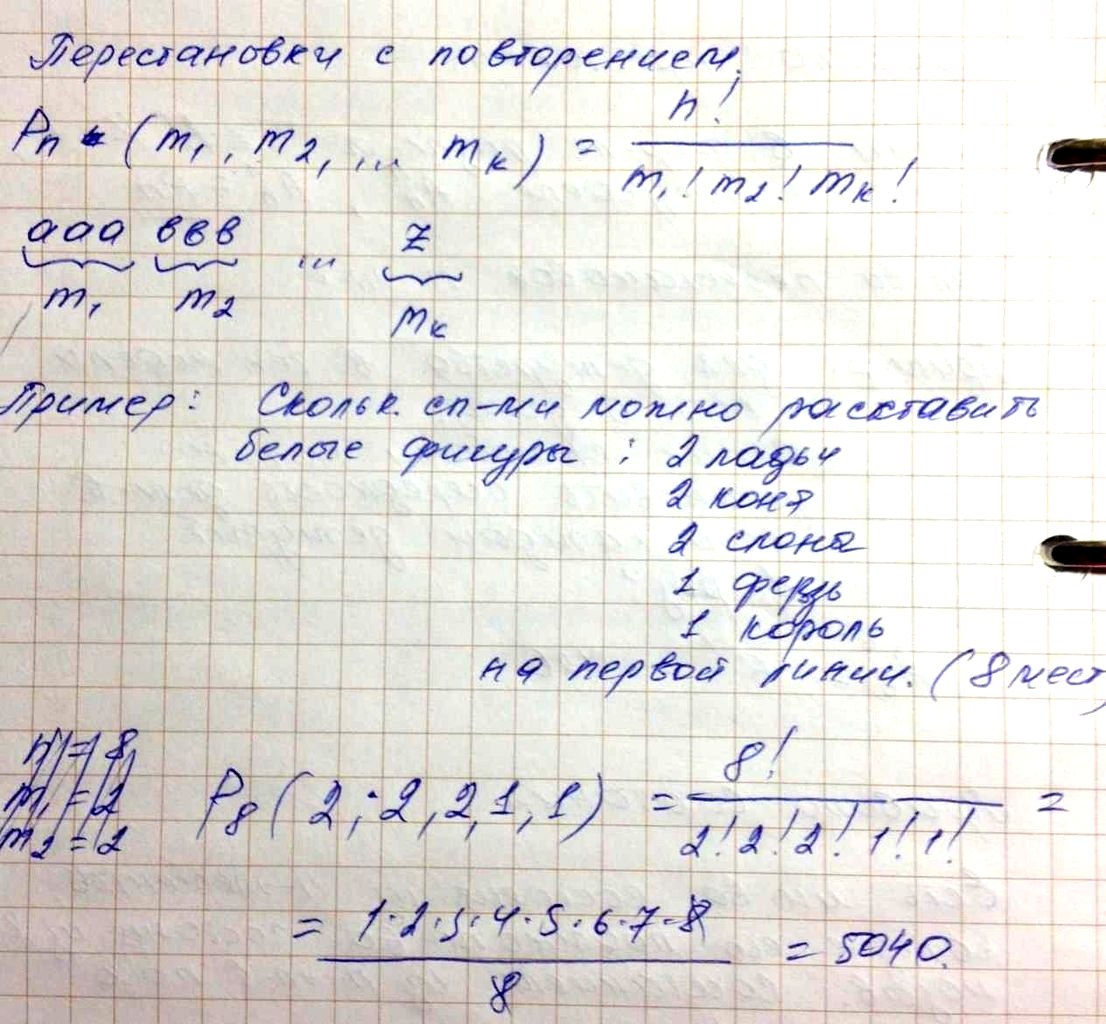 Перестановки с повторением.
Pn (m1, m2, ... mк) = n! / m1! m2! mк!
aaa ввв ... z
m1 m2 mк
Пример: Скольк. сп-ми можно расктавить
белые фигуры : 2 ладьи
2 коня
2 слона
1 ферзь
1 король
на первой линии. (8 мест)
n = 8
m1 = 2
m2 = 2
P8 (2; 2, 2, 1, 1) = 8! / 2! 2! 2! 1! 1! =
= 1·2·3·4·5·6·7·8 / 8 = 5040.